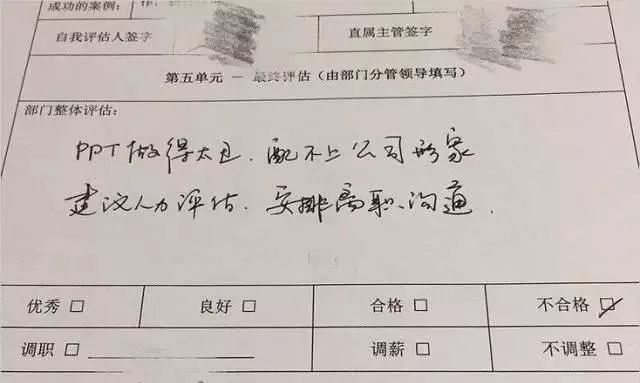 成功的案例:
自我评估人签字
直属主管签字
第五单元 — 最终评估（由部门分管领导填写）
部门整体评估:
PPT做得太丑.配不上公司形象
建议人力评估.安排离职沟通.
优秀 □ 良好 □ 合格 □ 不合格 ☑
调职 □ 调薪 □ 不调整 □